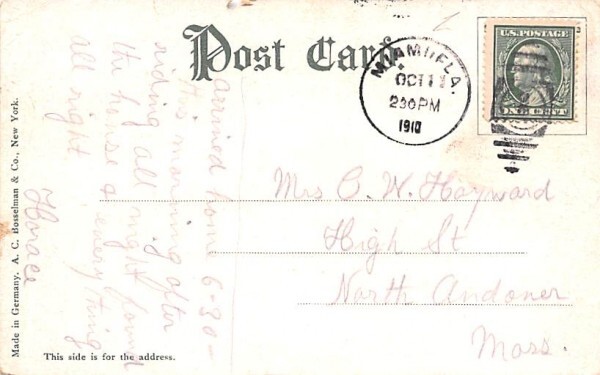 Post Card.
MIAMI, FLA.
OCT 11
230PM
1910
U.S. POSTAGE
ONE CENT
arrived home 6-30-
this morning after
riding all night found
the house & everything
all right
Horace
Mrs C. W. Hayward
High St
North Andover
Mass.
Made in Germany. A. C. Bosselman & Co., New York.
This side is for the address.